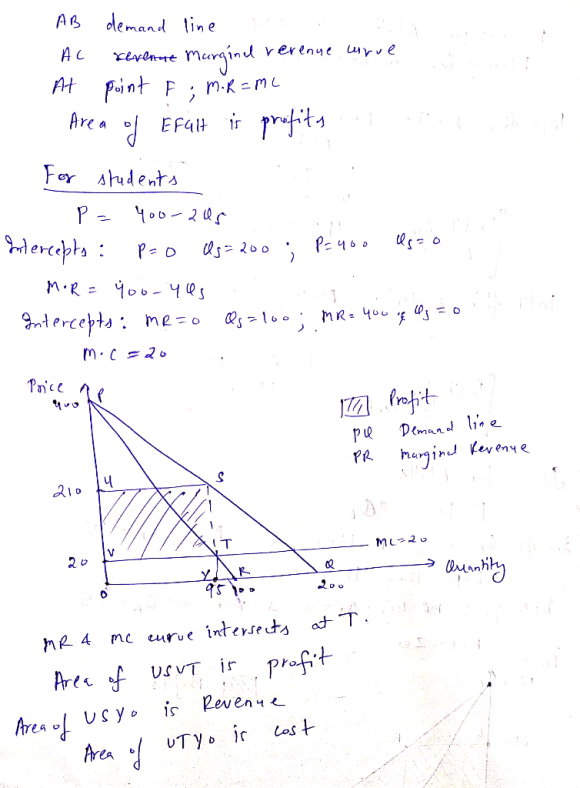 AB demand line
AC revenue Marginal revenue curve
At point F ; M.R = MC
Area of EFGH is profits
For students
P = 400 - 2Qs
Intercepts : P = 0 Qs = 200 ; P = 400 Qs = 0
M.R = 400 - 4Qs
Intercepts : MR = 0 Qs = 100 ; MR = 400 & Qs = 0
M.C = 20
Price P
400
Profit
PQ Demand line
PR Marginal Revenue
210 U S
T MC = 20
20 V
Y R Q Quantity
0 95 100 200
MR & MC curve intersects at T.
Area of USVT is profit
Area of USYO is Revenue
Area of UTYO is cost